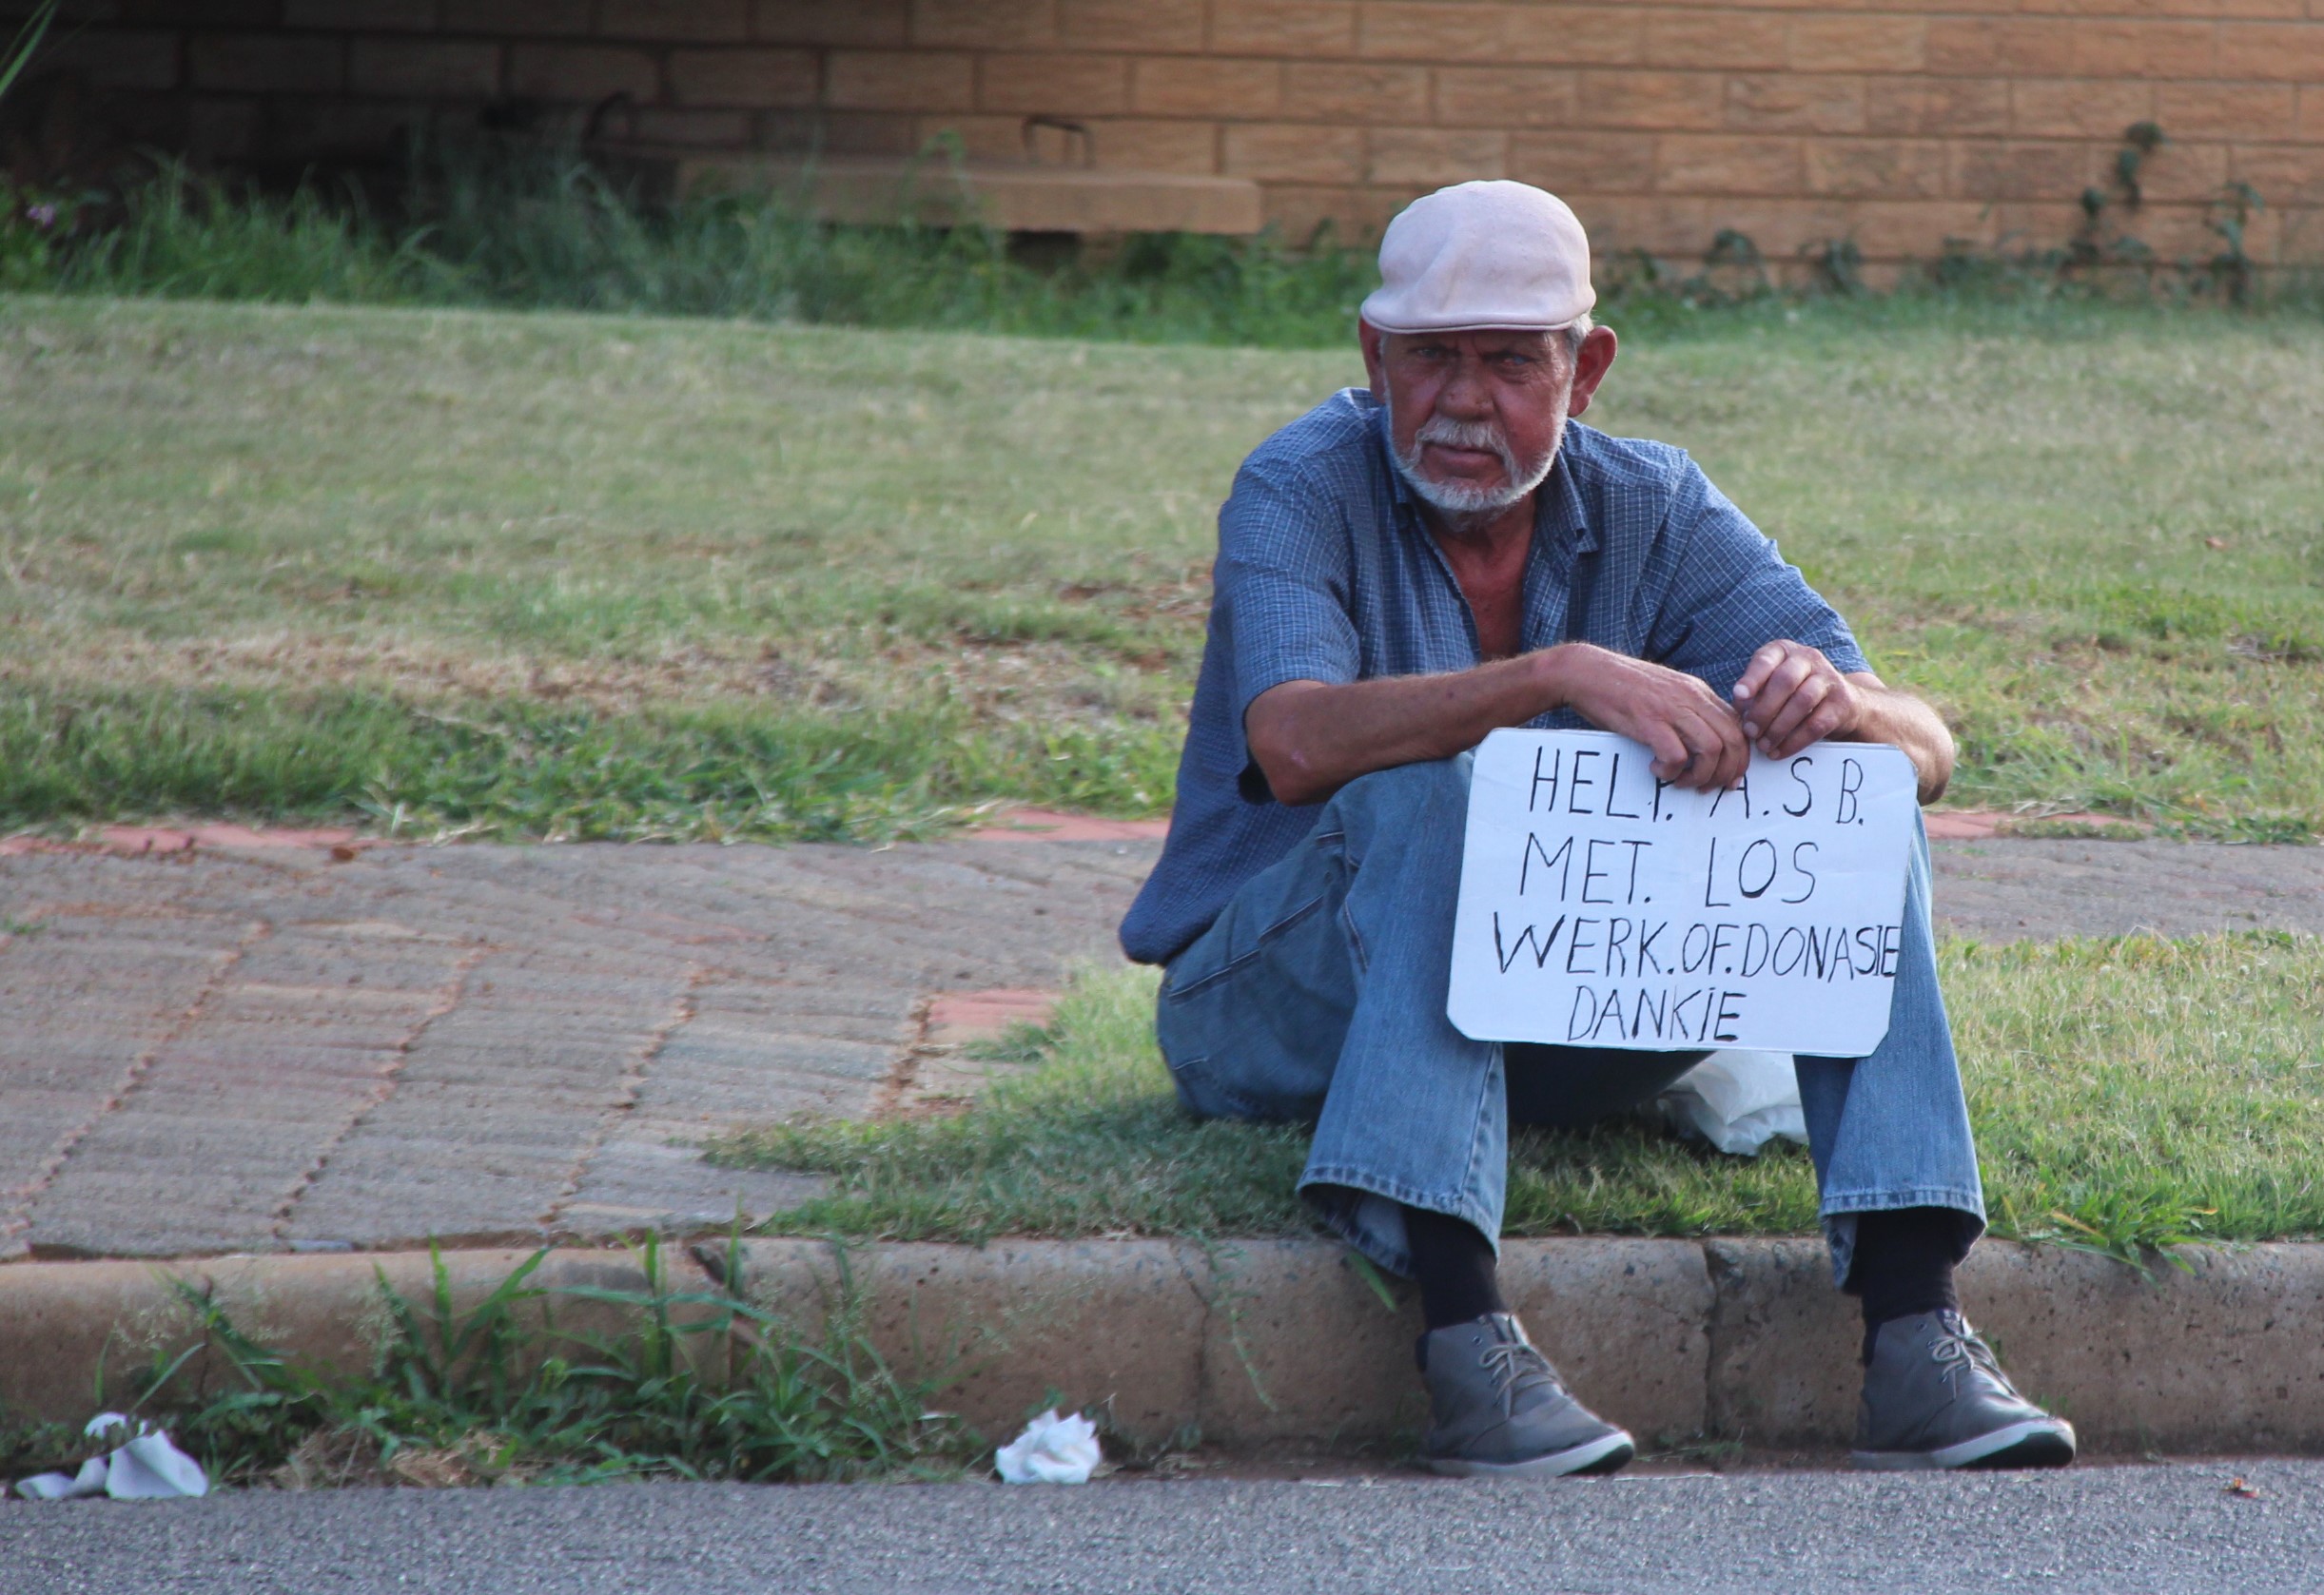 HELP. A.S B.
MET. LOS
WERK.OF.DONASIE
DANKIE